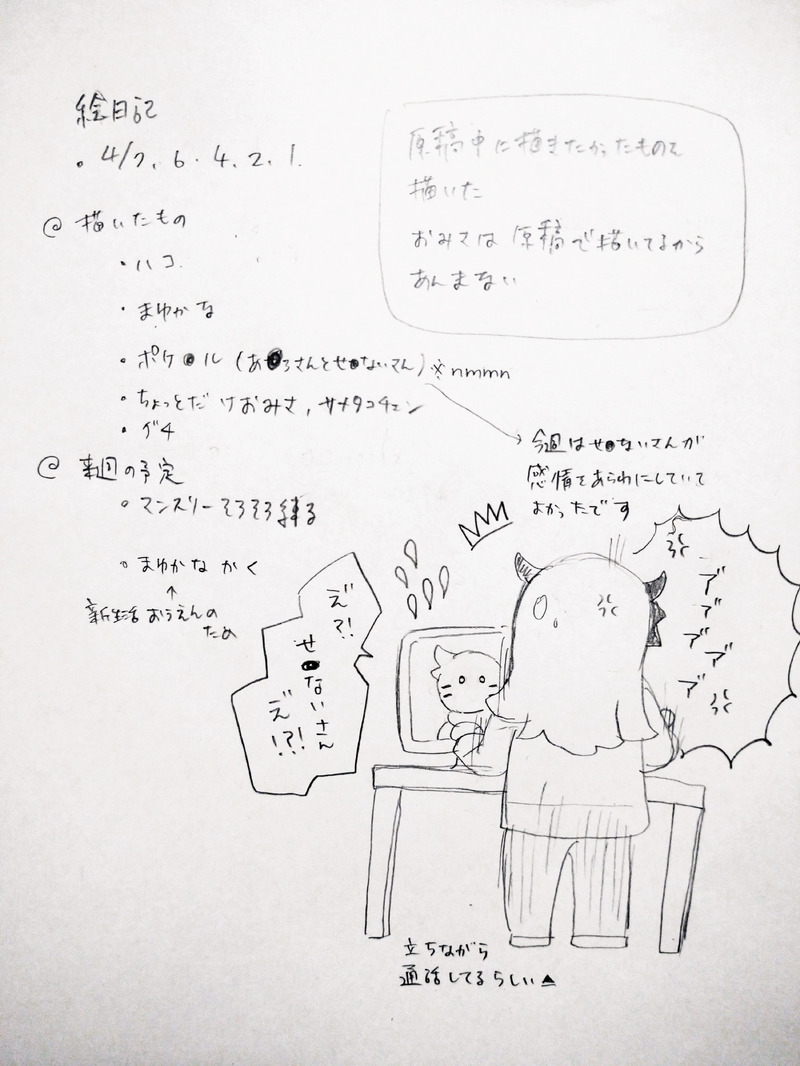 絵日記
・4/7、6・4、2、1.
@ 描いたもの
・ハコ
・まゆかな
・ポケ●ル (あ●ろさんとせ●ないさん) ※nmmn
・ちょっとだけおみさ, サメタコチェン
・グチ
@ 来週の予定
・マンスリーそろそろ練る
・まゆかなかく
↑
新生活おうえんの
ため
原稿中に描きたかったものを
描いた
おみさは原稿で描いてるから
あんまない
今週はせ●ないさんが
感情をあらわにしていて
よかったです
え゛?!
せ●ないさん
え゛!?!
ア゛
ア゛
ア゛
ア゛
ア゛
立ちながら
通話してるらしい▲